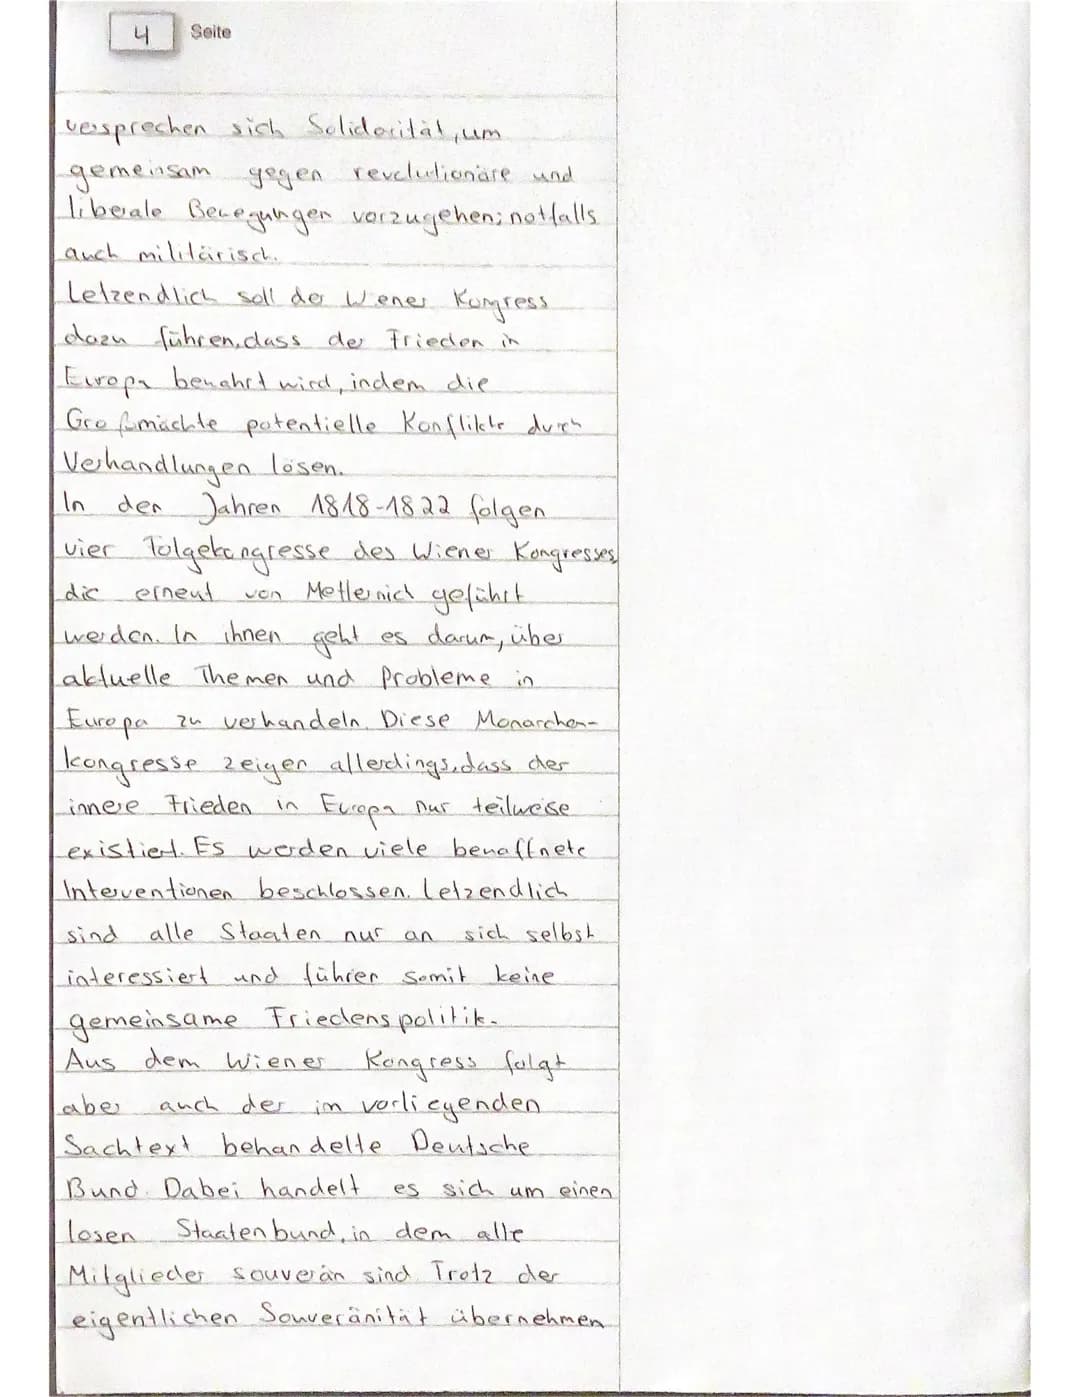 4 Seite
versprechen sich Solidarität, um
gemeinsam gegen revolutionäre und
liberale Bewegungen vorzugehen; notfalls
auch militärisch.
Letzendlich soll der Wiener Kongress
dazu führen, dass der Frieden in
Europa bewahrt wird, indem die
Großmächte potentielle Konflikte durch
Verhandlungen lösen.
In den Jahren 1818-1822 folgen
vier Folgekongresse des Wiener Kongresses,
die erneut von Metternich geführt
werden. In ihnen geht es darum, über
aktuelle Themen und Probleme in
Europa zu verhandeln. Diese Monarchen-
kongresse zeigen allerdings, dass der
innere Frieden in Europa nur teilweise
existiert. Es werden viele bewaffnete
Interventionen beschlossen. Letzendlich
sind alle Staaten nur an sich selbst
interessiert und führen somit keine
gemeinsame Friedenspolitik.
Aus dem Wiener Kongress folgt
aber auch der im vorliegenden
Sachtext behandelte Deutsche
Bund. Dabei handelt es sich um einen
losen Staatenbund, in dem alle
Mitglieder souverän sind. Trotz der
eigentlichen Souveränität übernehmen